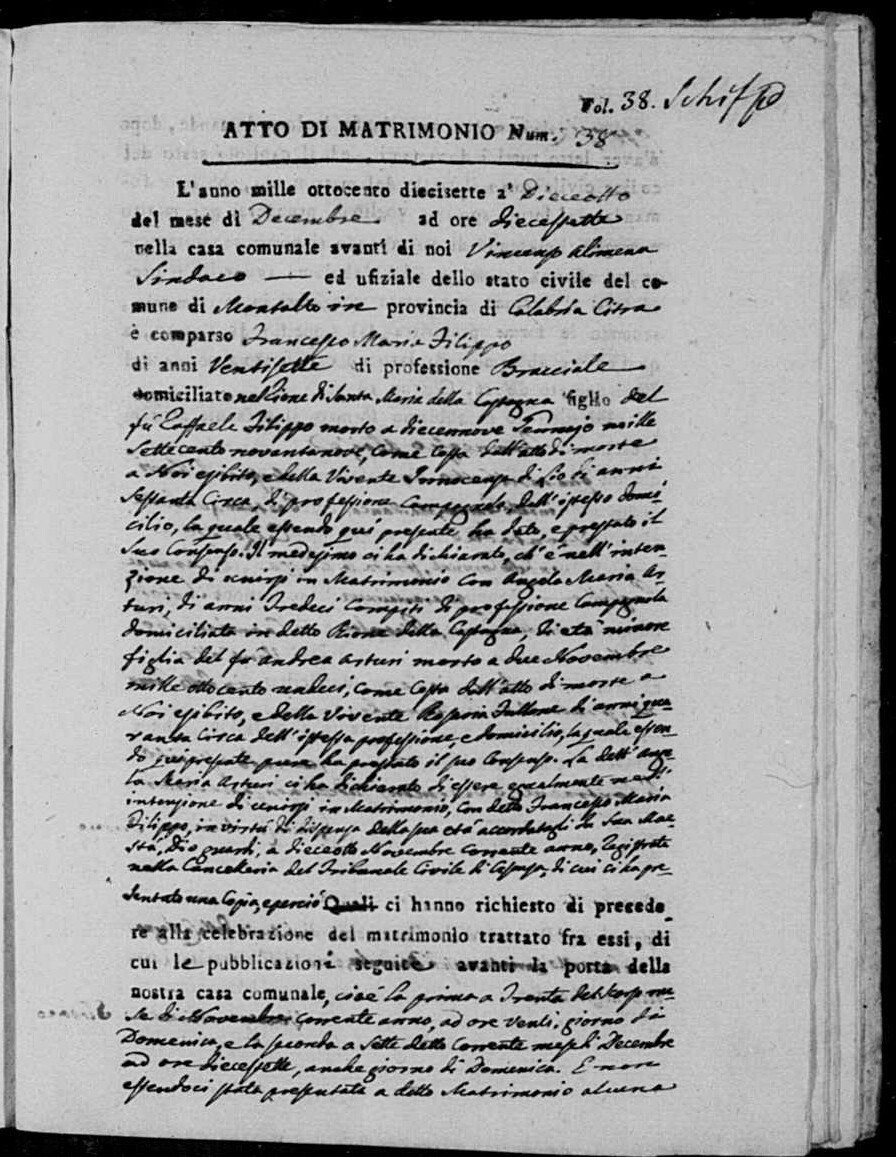 Fol. 38.
ATTO DI MATRIMONIO Num. 38
L'anno mille ottocento diecisette a' Dieceotto
del mese di Decembre ad ore diecessette
nella casa comunale avanti di noi Vincenzo Alimena
Sindaco — ed ufiziale dello stato civile del co-
mune di Montalto in provincia di Calabria Citra
è comparso Francesco Maria Filippo
di anni Ventisette di professione Bracciale
domiciliato nel Rione di Santa Maria della Castagna figlio del
fù Raffaele Filippo morto a diecennove Gennajo mille
Settecento novantanove, come costa dall'atto di morte
a Noi esibito, e della Vivente Innocenza di Lio di anni
Sessanta Circa, di professione Campagnola, dell'istesso domi-
cilio, la quale essendo quì presente ha dato, e prestato il
Suo Consenso. Il medesimo ci ha dichiarato, ch'è nell'inten-
zione di unirsi in Matrimonio con Angela Maria Ar-
turi, di anni Tredeci compiti di professione Campagnola
domiciliata in detto Rione della Castagna, di età minore
figlia del fu Andrea Arturi morto a due Novembre
mille ottocento undeci, come costa dall'atto di morte a
Noi esibito, e della Vivente Rosaria Fullone di anni qua-
ranta Circa dell'istessa professione, e domicilio, la quale essen-
do quì presente pure ha prestato il suo Consenso. La dett'Ange-
la Maria Arturi ci ha dichiarato di essere egualmente nell'
intenzione di unirsi in Matrimonio, con detto Francesco Maria
Filippo, in virtù di dispensa della sua età accordatagli da Sua Mae-
stà, Dio guardi, a dieceotto Novembre corrente anno, registrata
nella Cancelleria del Tribunale Civile di Cosenza, di cui ci ha pre-
sentato una Copia, e perciò Quali ci hanno richiesto di precede-
re alla celebrazione del matrimonio trattato fra essi, di
cui le pubblicazioni seguite avanti la porta della
nostra casa comunale, cioè la prima a Trenta del scorso me-
se di Novembre corrente anno, ad ore venti, giorno di
Domenica, e la seconda a Sette detto Corrente mese di Decembre
ad ore diecessette, anche giorno di Domenica. E non
essendoci stata presentata a detto Matrimonio alcuna